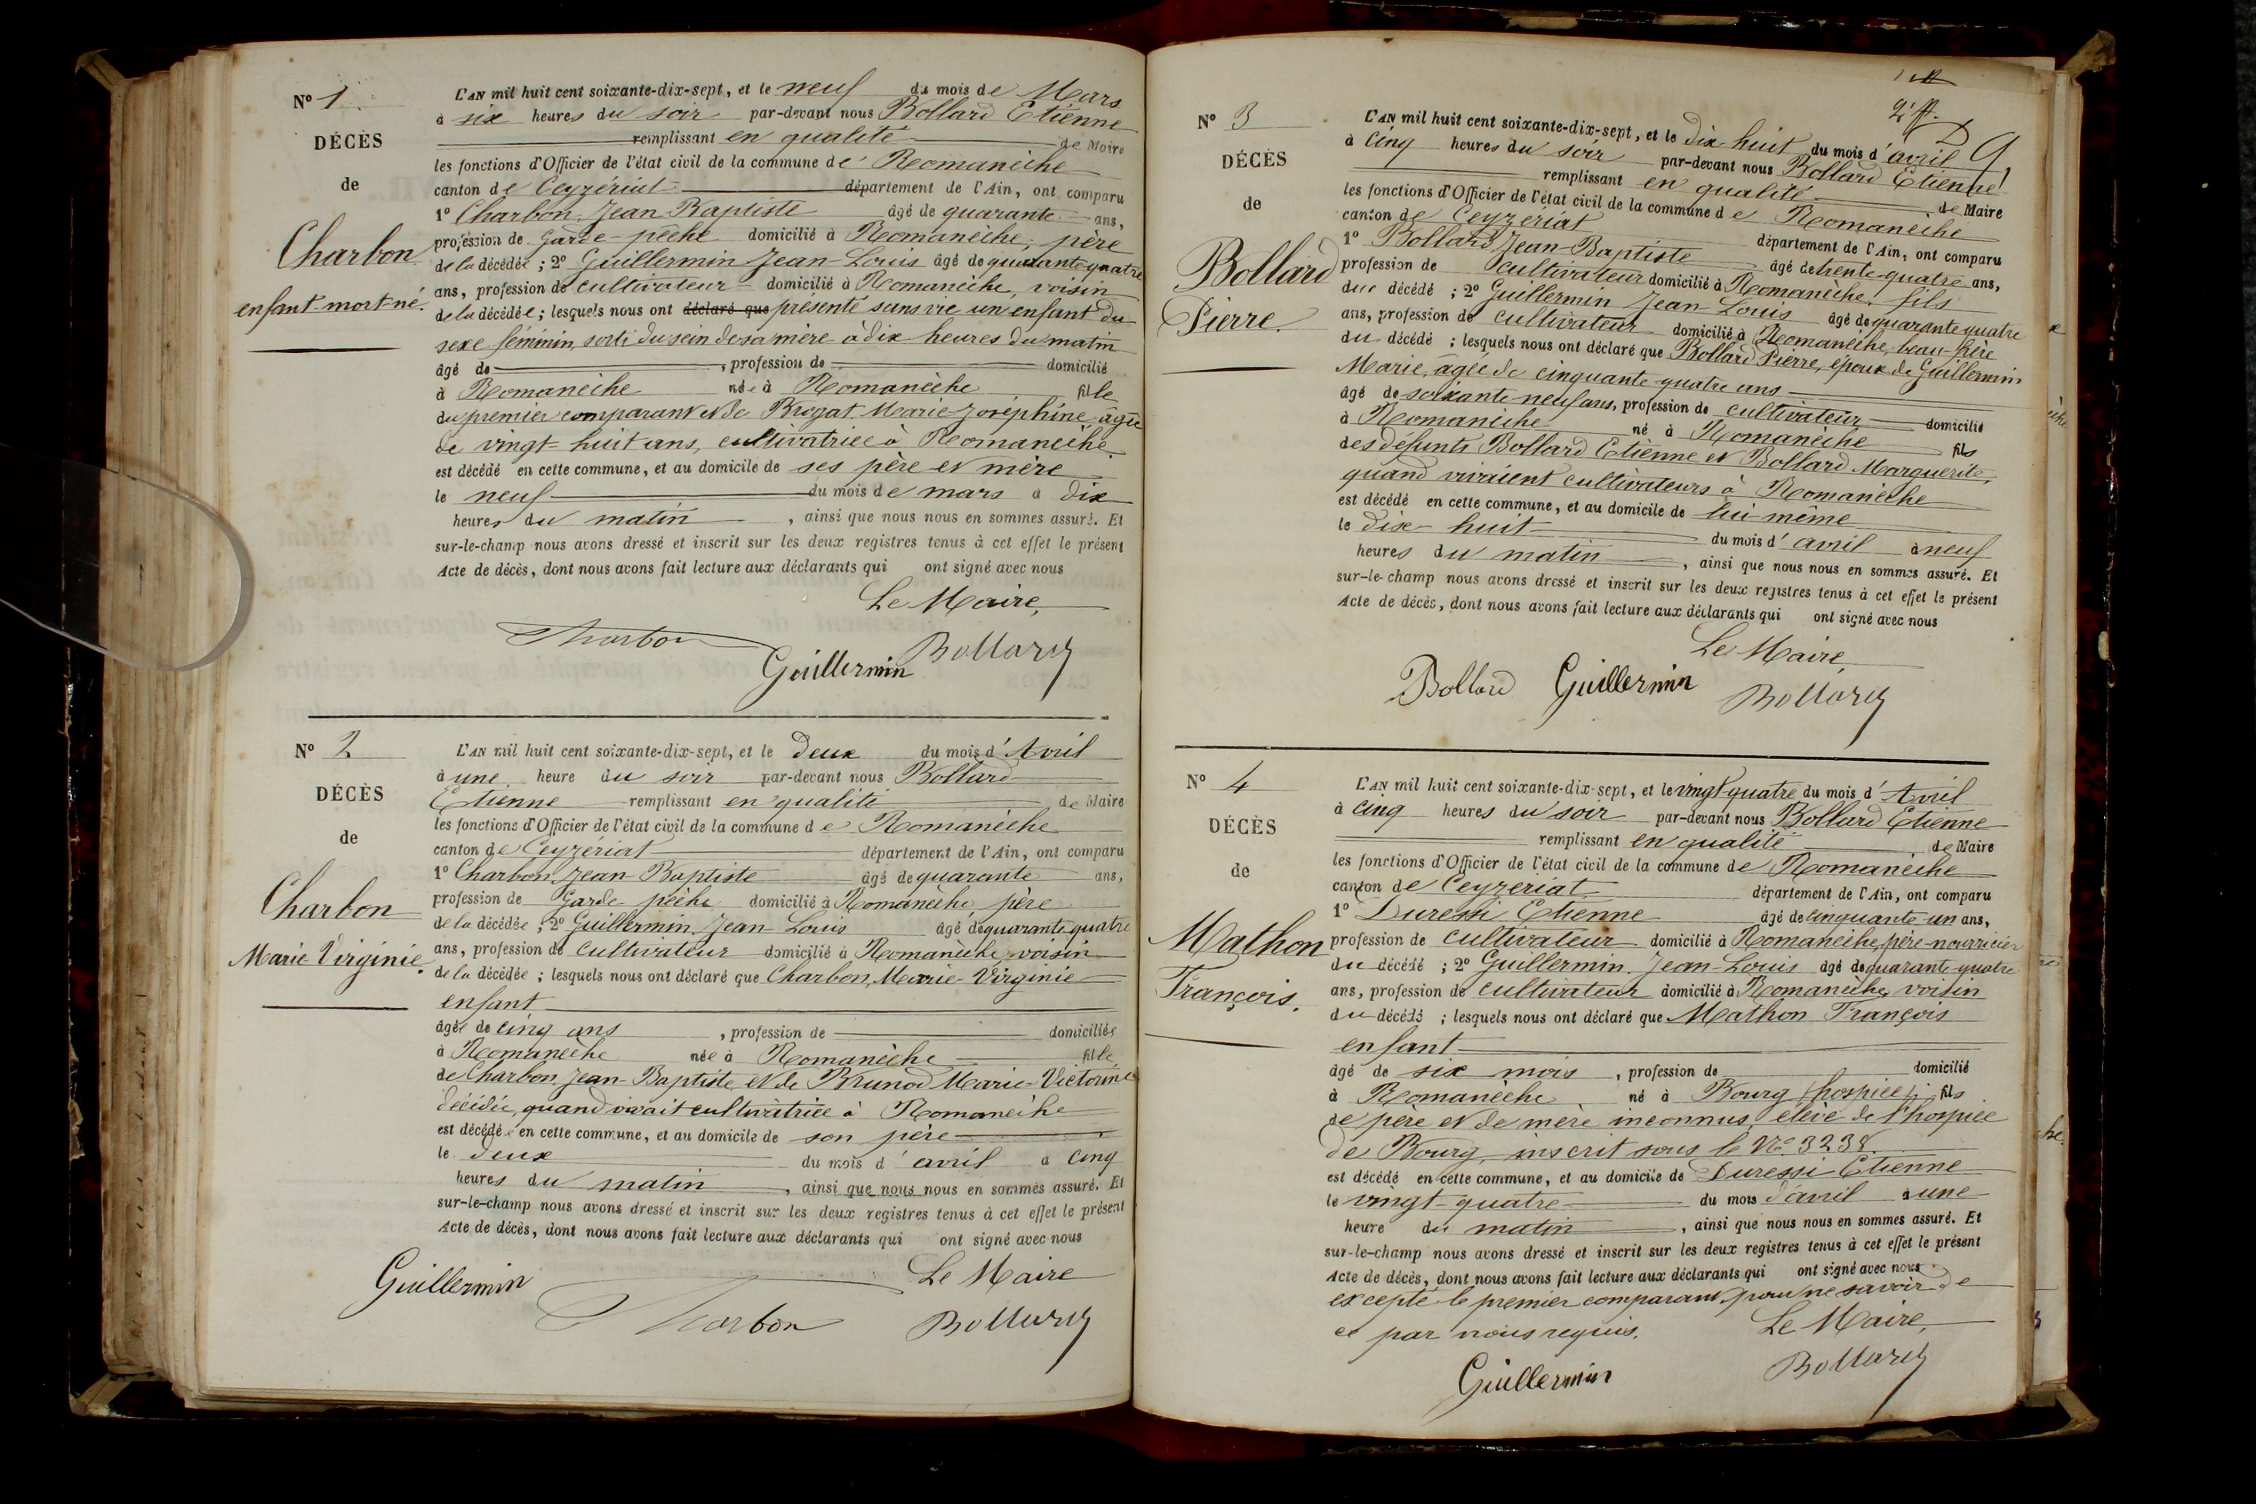 N° 1
DÉCÈS
de
Charbon
enfant mort-né.
L'AN mil huit cent soixante-dix-sept, et le neuf du mois de Mars
à six heures du soir par-devant nous Bollard Etienne
remplissant en qualité de Maire
les fonctions d'Officier de l'état civil de la commune de Romanèche
canton de Ceyzériat département de l'Ain, ont comparu
1° Charbon, Jean Baptiste âgé de quarante ans,
profession de garde-pêche domicilié à Romanèche, père
de la décédée ; 2° Guillermin Jean-Louis âgé de quarante-quatre
ans, profession de cultivateur domicilié à Romanèche, voisin
de la décédée ; lesquels nous ont déclaré que présenté sans vie un enfant du
sexe féminin, sorti du sein de sa mère à dix heures du matin
âgé de , profession de domicilié
à Romanèche née à Romanèche fille
du premier comparant et de Brogat Marie Joséphine, âgée
de vingt-huit ans, cultivatrice à Romanèche
est décédé en cette commune, et au domicile de ses père et mère
le neuf du mois de mars à dix
heures du matin , ainsi que nous nous en sommes assuré. Et
sur-le-champ nous avons dressé et inscrit sur les deux registres tenus à cet effet le présent
Acte de décès, dont nous avons fait lecture aux déclarants qui ont signé avec nous
Le Maire,
Charbon
Guillermin Bollard
N° 2
DÉCÈS
de
Charbon
Marie Virginie.
L'AN mil huit cent soixante-dix-sept, et le deux du mois d'Avril
à une heure du soir par-devant nous Bollard
Etienne remplissant en qualité de Maire
les fonctions d'Officier de l'état civil de la commune de Romanèche
canton de Ceyzériat département de l'Ain, ont comparu
1° Charbon, Jean-Baptiste âgé de quarante ans,
profession de Garde-pêche domicilié à Romanèche, père
de la décédée ; 2° Guillermin, Jean-Louis âgé de quarante-quatre
ans, profession de cultivateur domicilié à Romanèche, voisin
de la décédée ; lesquels nous ont déclaré que Charbon, Marie-Virginie
enfant
âgée de cinq ans , profession de domiciliée
à Romanèche née à Romanèche fille
de Charbon, Jean-Baptiste, et de Brunod Marie-Victorine
décédée, quand vivait cultivatrice à Romanèche
est décédée en cette commune, et au domicile de son père
le deux du mois d'avril à cinq
heures du matin , ainsi que nous nous en sommes assuré. Et
sur-le-champ nous avons dressé et inscrit sur les deux registres tenus à cet effet le présent
Acte de décès, dont nous avons fait lecture aux déclarants qui ont signé avec nous
Le Maire
Guillermin
Charbon Bollard
N° 3
DÉCÈS
de
Bollard
Pierre.
L'AN mil huit cent soixante-dix-sept, et le dix-huit du mois d'avril
à cinq heures du soir par-devant nous Bollard Etienne
remplissant en qualité de Maire
les fonctions d'Officier de l'état civil de la commune de Romanèche
canton de Ceyzériat département de l'Ain, ont comparu
1° Bollard Jean-Baptiste âgé de trente-quatre ans,
profession de cultivateur domicilié à Romanèche, fils
du décédé ; 2° Guillermin Jean-Louis âgé de quarante quatre
ans, profession de cultivateur domicilié à Romanèche, beau-frère
du décédé ; lesquels nous ont déclaré que Bollard Pierre, époux de Guillermin
Marie, âgée de cinquante-quatre ans
âgé de soixante-neuf ans, profession de cultivateur domicilié
à Romanèche né à Romanèche fils
des défunts Bollard Etienne et Bollard Marguerite,
quand vivaient cultivateurs à Romanèche
est décédé en cette commune, et au domicile de lui-même
le dix-huit du mois d'avril à neuf
heures du matin , ainsi que nous nous en sommes assuré. Et
sur-le-champ nous avons dressé et inscrit sur les deux registres tenus à cet effet le présent
Acte de décès, dont nous avons fait lecture aux déclarants qui ont signé avec nous
Le Maire,
Bollard Guillermin Bollard
N° 4
DÉCÈS
de
Mathon
François.
L'AN mil huit cent soixante-dix-sept, et le vingt-quatre du mois d'Avril
à cinq heures du soir par-devant nous Bollard Etienne
remplissant en qualité de Maire
les fonctions d'Officier de l'état civil de la commune de Romanèche
canton de Ceyzériat département de l'Ain, ont comparu
1° Duressi Etienne âgé de cinquante-un ans,
profession de cultivateur domicilié à Romanèche, père-nourricier
du décédé ; 2° Guillermin, Jean-Louis âgé de quarante-quatre
ans, profession de cultivateur domicilié à Romanèche, voisin
du décédé ; lesquels nous ont déclaré que Mathon François
enfant
âgé de six mois , profession de domicilié
à Romanèche né à Bourg (hospice), fils
de père et de mère inconnus, élève de l'hospice
de Bourg, inscrit sous le N° 3238
est décédé en cette commune, et au domicile de Duressi Etienne
le vingt-quatre du mois d'avril à une
heure du matin , ainsi que nous nous en sommes assuré. Et
sur-le-champ nous avons dressé et inscrit sur les deux registres tenus à cet effet le présent
Acte de décès, dont nous avons fait lecture aux déclarants qui ont signé avec nous
excepté le premier comparant pour ne savoir de
ce par nous requis. Le Maire,
Guillermin Bollard